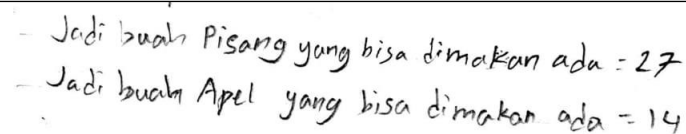 - Jadi buah Pisang yang bisa dimakan ada = 27
- Jadi buah Apel yang bisa dimakan ada = 14